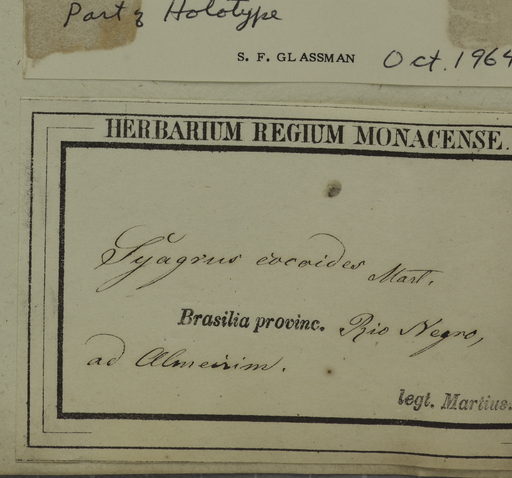 Part of Holotype
S. F. GLASSMAN Oct. 1964
HERBARIUM REGIUM MONACENSE.
Syagrus cocoides Mart.
Brasilia provinc. Rio Negro,
ad Almeirim.
legt. Martius.